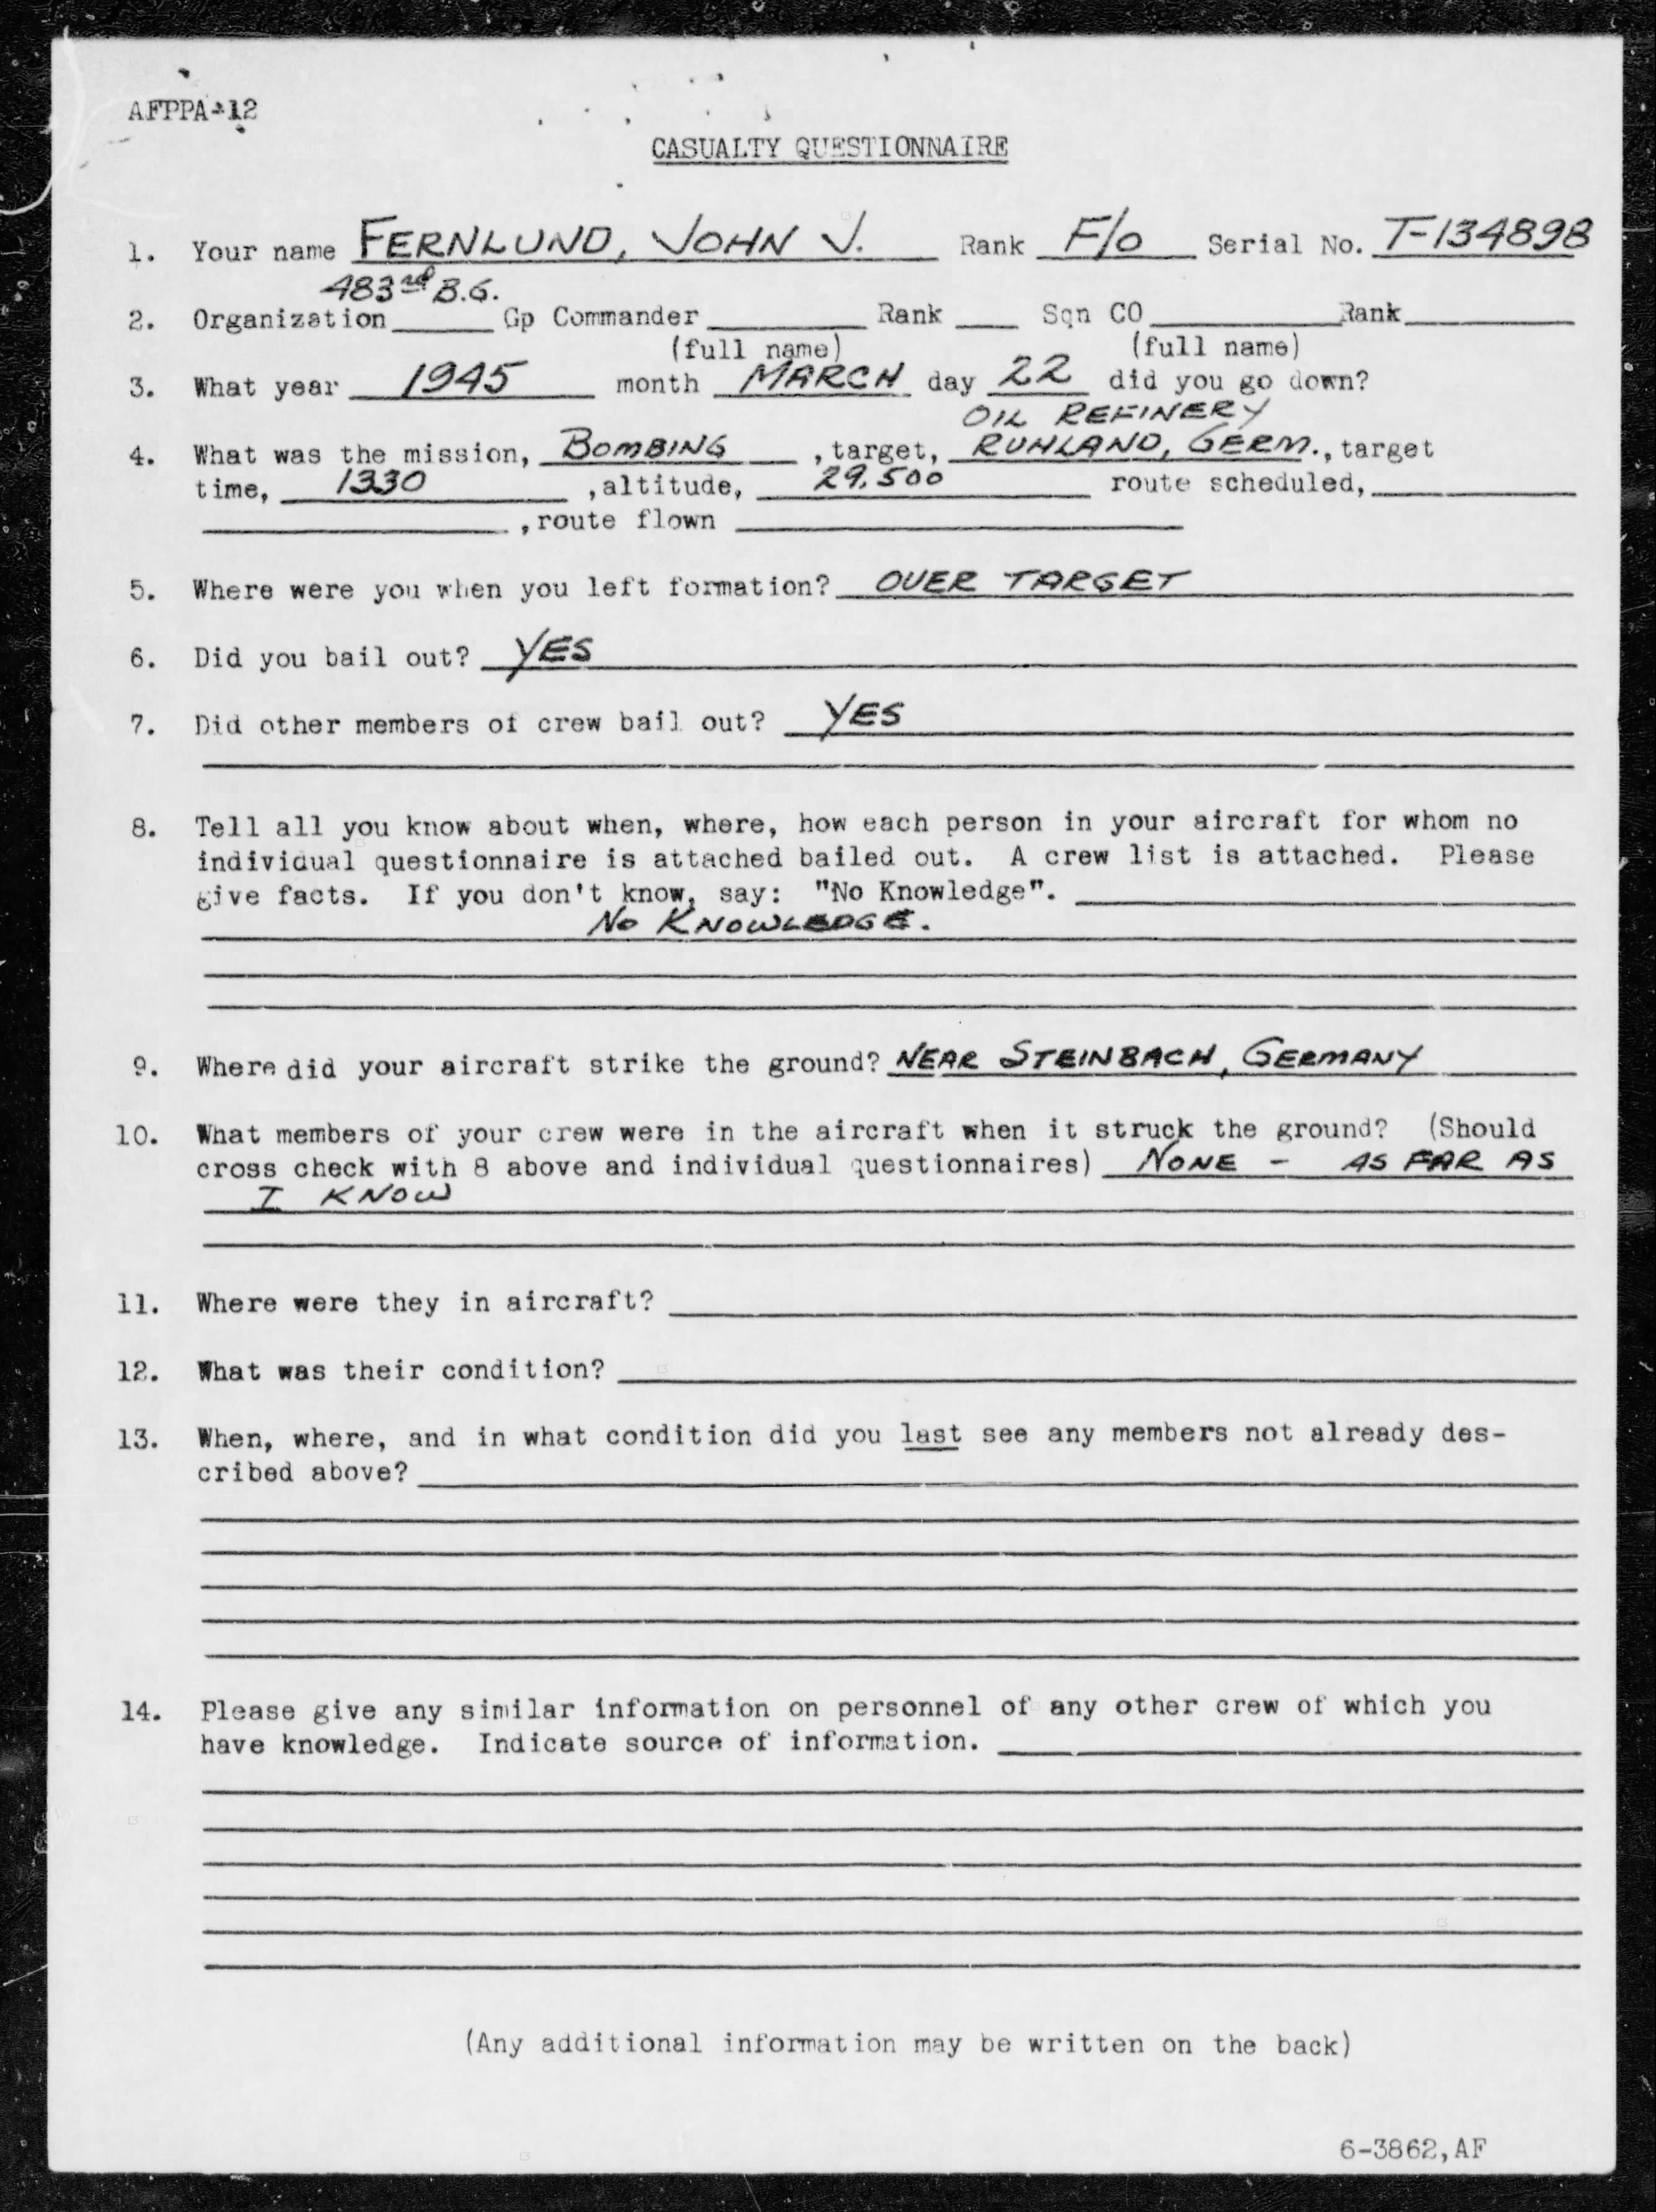 AFPPA-12
CASUALTY QUESTIONNAIRE
1. Your name FERNLUND, JOHN V. Rank F/O Serial No. T-134898
483rd B.G.
2. Organization Gp Commander Rank Sqn CO Rank
(full name) (full name)
3. What year 1945 month MARCH day 22 did you go down?
OIL REFINERY
4. What was the mission, BOMBING , target, RUHLAND, GERM., target
time, 1330 , altitude, 29,500 route scheduled,
, route flown
5. Where were you when you left formation? OVER TARGET
6. Did you bail out? YES
7. Did other members of crew bail out? YES
8. Tell all you know about when, where, how each person in your aircraft for whom no
individual questionnaire is attached bailed out. A crew list is attached. Please
give facts. If you don't know, say: "No Knowledge".
NO KNOWLEDGE.
9. Where did your aircraft strike the ground? NEAR STEINBACH, GERMANY
10. What members of your crew were in the aircraft when it struck the ground? (Should
cross check with 8 above and individual questionnaires) NONE - AS FAR AS
I KNOW
11. Where were they in aircraft?
12. What was their condition?
13. When, where, and in what condition did you last see any members not already des-
cribed above?
14. Please give any similar information on personnel of any other crew of which you
have knowledge. Indicate source of information.
(Any additional information may be written on the back)
6-3862,AF